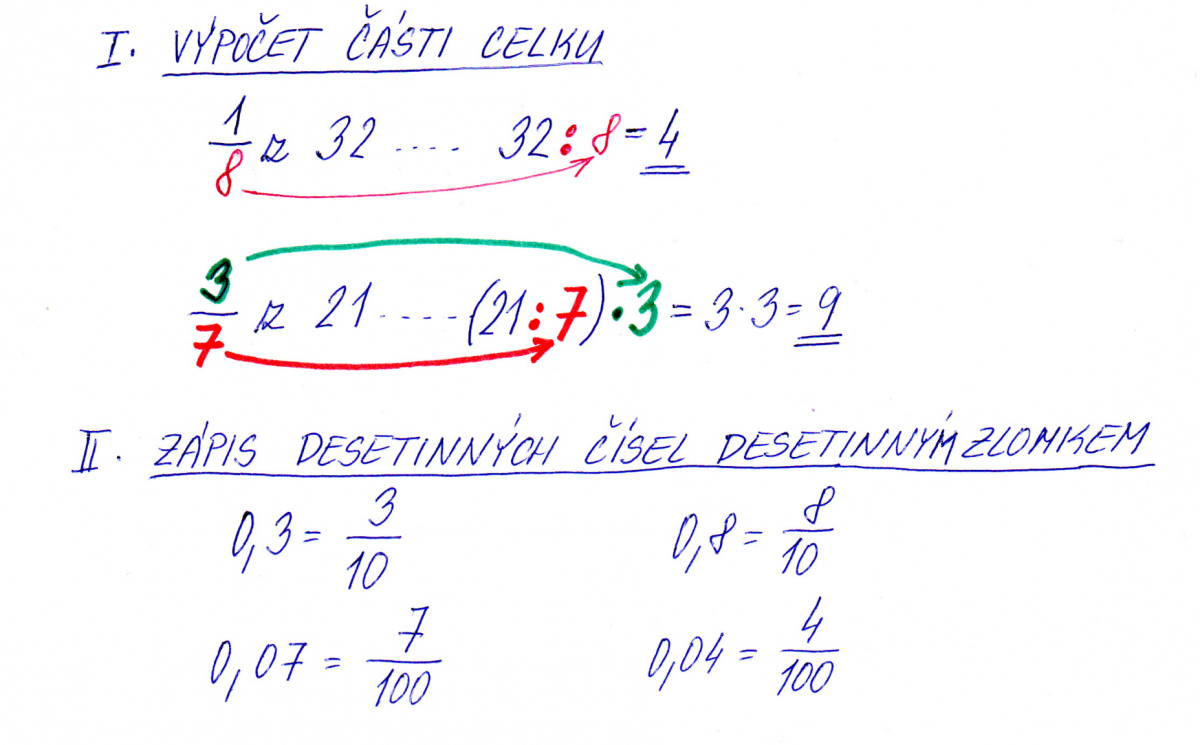 I. VÝPOČET ČÁSTI CELKU
1/8 z 32 .... 32 : 8 = 4
3/7 z 21 ..... (21 : 7) · 3 = 3 · 3 = 9
II. ZÁPIS DESETINNÝCH ČÍSEL DESETINNÝM ZLOMKEM
0,3 = 3/10 0,8 = 8/10
0,07 = 7/100 0,04 = 4/100